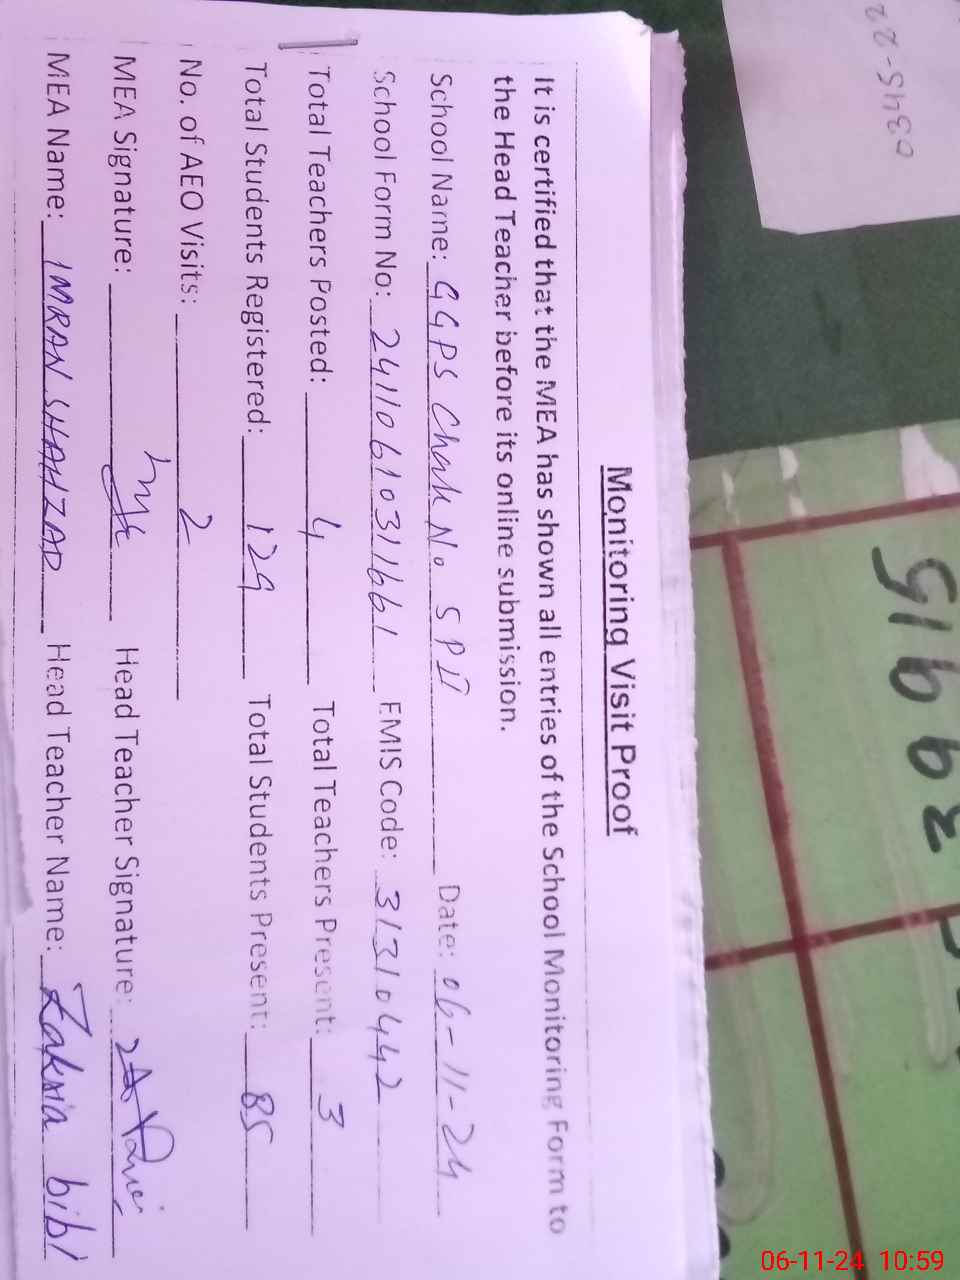 Monitoring Visit Proof
It is certified that the MEA has shown all entries of the School Monitoring Form to
the Head Teacher before its online submission.
School Name: GGPS Chak No. 5 P II Date: 06-11-24
School Form No: 24110610311661 EMIS Code: 31310442
Total Teachers Posted: 4 Total Teachers Present: 3
Total Students Registered: 129 Total Students Present: 85
No. of AEO Visits: 2
MEA Signature: Head Teacher Signature:
MEA Name: IMRAN SHAHZAD Head Teacher Name: Zakria bibi
0345-22
06-11-24 10:59